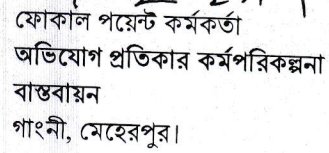 ফোকাল পয়েন্ট কর্মকর্তা
অভিযোগ প্রতিকার কর্মপরিকল্পনা
বাস্তবায়ন
গাংনী, মেহেরপুর।